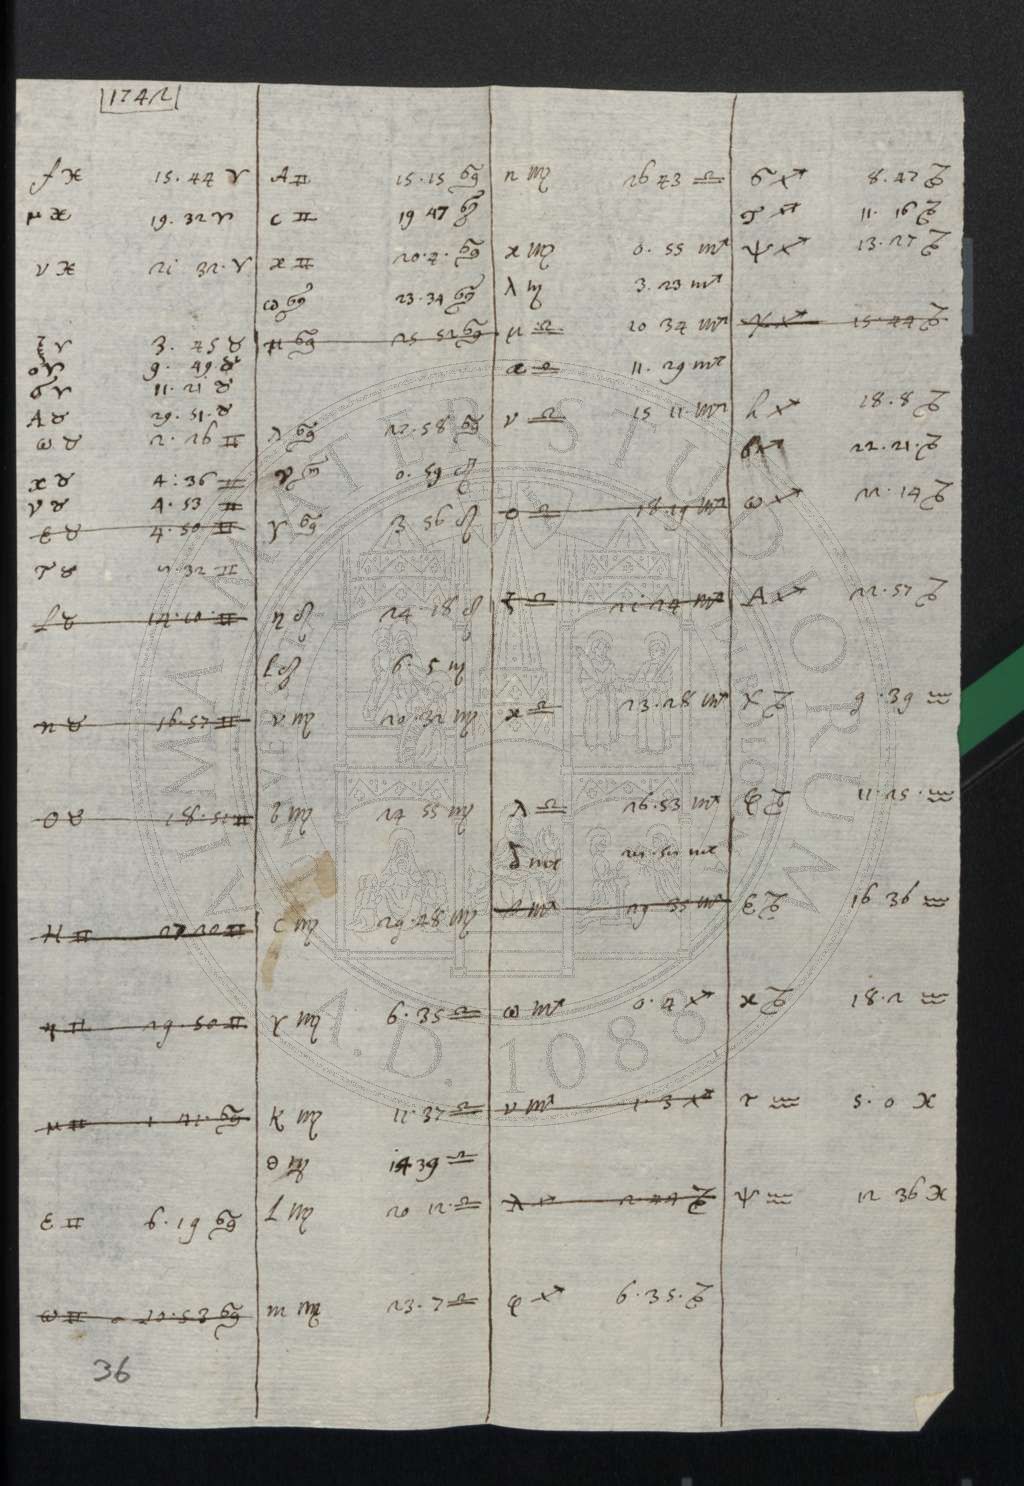 1742
f ♓ 15. 44 ♈
μ ♓ 19. 32 ♈
ν ♓ 21 32. ♈
ξ ♈ 3. 45 ♉
ο ♈ 9. 49 ♉
σ ♈ 11. 21 ♉
A ♉ 29. 51. ♉
ω ♉ 2. 26 ♊
κ ♉ 4: 36 ♊
υ ♉ 4. 53 ♊
ε ♉ 4. 50 ♊
τ ♉ 32 ♊
l ♉ 14. 10. ♊
n ♉ 16. 57 ♊
ο ♉ 18. 51 ♊
H ♊ 27 20 ♊
η ♊ 29. 50 ♊
μ ♊ 1 41. ♋
ε ♊ 6. 19 ♋
ω ♊ 20. 53 ♋
36
A ♊ 15. 15 ♋
c ♊ 19 47 ♋
κ ♊ 20. 7. ♋
ω ♋ 23. 34 ♋
μ ♋ 25 52 ♋
λ ♋ 22. 58 ♋
υ ♋ 0. 59 ♌
γ ♋ 3 56 ♌
η ♌ 24. 18 ♌
♌ 6. 5 ♍
ν ♍ 20. 32 ♍
b ♍ 24 55 ♍
c ♍ 29. 48 ♍
γ ♍ 6. 35 ♎
k ♍ 11. 37 ♎
θ ♍ 14 39 ♎
l ♍ 20 12. ♎
m ♍ 23. 7 ♎
n ♍ 26 43 ♎
κ ♍ 0. 55 ♏
λ ♍ 3. 23 ♏
μ ♎ 10 34 ♏
κ ♎ 11. 29 ♏
ν ♎ 15 11. ♏
ο ♎ 18 19 ♏
ξ ♎ 21 24 ♏
κ ♎ 23. 28 ♏
λ ♎ 26. 53 ♏
δ ♏ ♏
♏ 29 35 ♏
ω ♏ 0. 4 ♐
ν ♏ 1. 3 ♐
λ ♐ 2 44 ♑
φ ♐ 6. 35. ♑
σ ♐ 8. 47 ♑
τ ♐ 11. 16 ♑
ψ ♐ 13. 27 ♑
χ ♐ 15. 44 ♑
h ♐ 18. 8 ♑
b ♐ 22. 21. ♑
ω ♐ 22. 14 ♑
A ♐ 22. 57 ♑
χ ♑ 9. 39 ♒
φ ♑ 11. 25. ♒
ε ♑ 16 36 ♒
κ ♑ 18. 2 ♒
τ ♒ 5. 0 ♓
ψ ♒ 12 36 ♓
ALMA MATER STUDIORUM
UNIVERSITÀ DI BOLOGNA
A.D. 1088